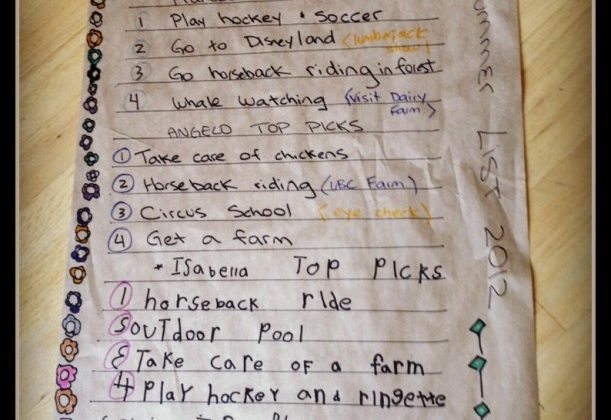 1 Play hockey & Soccer
2 Go to Disneyland (lumberjack show)
3 Go horseback riding in forest
4 Whale watching (Visit Dairy Farm)
ANGELO TOP PICKS
1 Take care of chickens
2 Horseback riding (UBC Farm)
3 Circus School (eye check)
4 Get a farm
* ISabella TOP PICKS
1 horseback ride
S outdoor pool
8 Take care of a farm
4 Play hockey and ringette
LIST 2012